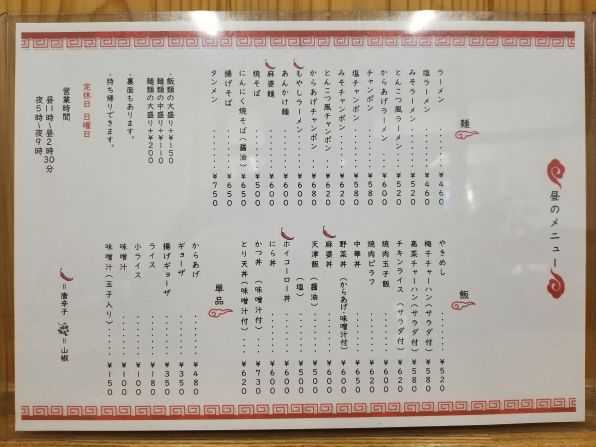 昼のメニュー
麺
ラーメン......¥460
塩ラーメン......¥460
みそラーメン......¥520
とんこつ風ラーメン...¥520
からあげラーメン....¥620
チャンポン......¥580
塩チャンポン.....¥580
みそチャンポン....¥620
とんこつ風チャンポン..¥620
からあげチャンポン...¥680
もやしラーメン....¥600
あんかけ麺......¥600
麻婆麺........¥600
焼そば........¥500
にんにく焼そば(醤油)..¥650
揚げそば.......¥650
タンメン.......¥750
飯
やきめし......¥520
梅干チャーハン(サラダ付)¥580
高菜チャーハン(サラダ付)¥580
チキンライス(サラダ付).¥620
焼肉玉子飯......¥600
焼肉ピラフ......¥620
中華丼........¥600
野菜丼(からあげ・味噌汁付)¥650
麻婆丼........¥600
天津飯(醤油).....¥500
(塩)........¥500
ホイコーロー丼....¥600
にら丼........¥600
かつ丼(味噌汁付)...¥730
とり天丼(味噌汁付)..¥620
単品
からあげ.......¥480
ギョーザ.......¥350
揚げギョーザ.....¥350
ライス........¥180
小ライス.......¥100
味噌汁........¥100
味噌汁(玉子入り)...¥150
・飯類の大盛り+¥150
麺類の中盛り+¥110
麺類の大盛り+¥200
・裏面もあります。
・持ち帰りできます。
定休日 日曜日
営業時間
昼11時~昼2時30分
夜5時~夜9時
=唐辛子
=山椒